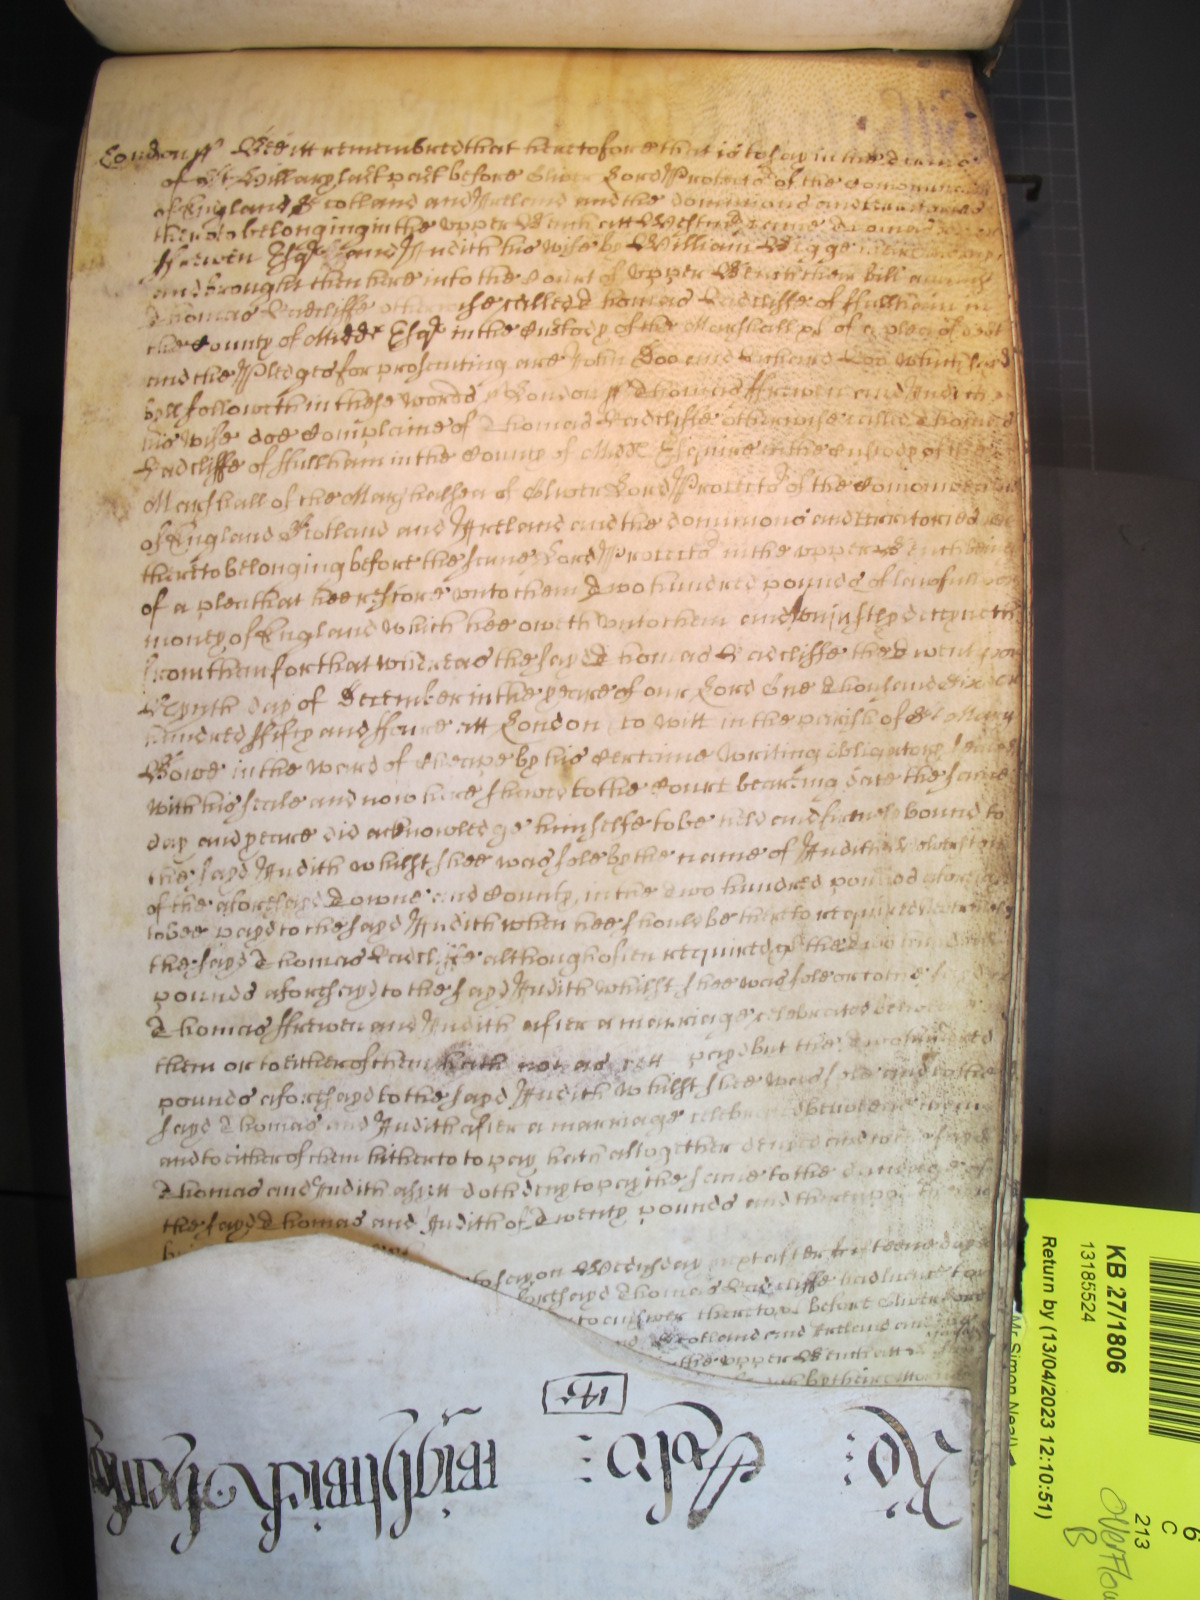 London ss Bee itt remembred that heretofore that is to say in the Terme
of St Hillary last past before Oliver Lord Protector of the Comonwealth
of England Scotland and Ireland and the dominions and territories
thereto belonging in the upper Bench att Westm came Thomas
ffrewen Esqr and Judith his wife by William Wigge their Attorney
and brought then here into the Court of upper Bench their bill against
Thomas Radcliffe otherwise called Thomas Radcliffe of ffullham in
the County of Middx Esqr in the Custody of the Marshall &c of a plea of debt
and the Pledges for prosecuting are John Doo and Richard Roo which said
bill followeth in these words London ss Thomas ffrewen and Judith
his Wife doe Complaine of Thomas Radcliffe otherwise called Thomas
Radcliffe of ffullham in the County of Midd Esquire in the Custody of the
Marshall of the Marshalsea of Oliver Lord Protector of the Comonwealth
of England Scotland and Ireland and the dominions and territories
thereto belonging before the same Lord Protector in the upper Bench being
of a plea that hee restore unto them Two hundred pounds of lawfull
money of England which hee oweth unto them and uniustly deteyneth
from them for that whereas the sayd Thomas Radcliffe the twenty
day of December in the yeare of our Lord One Thousand Six
hundred ffifty and ffoure att London to witt in the parish of St Mary
Bowe in the ward of Cheape by his Certaine writing obligatory sealed
with his seale and now here shewed to the Court bearing date the same
day and yeare did acknowledge himselfe to be held and firmely bound to
the sayd Judith whilst shee was sole by the name of Judith
of the aforesayd Towne and County, in the Two hundred pounds aforesayd
to bee payd to the sayd Judith when hee should be thereto required Neverthelesse
the sayd Thomas Radcliffe although often required the Two hundred
pounds aforesayd to the sayd Judith whilst shee was sole or to the sayd
Thomas ffrewen and Judith after a marriage celebrated betweene
them or to either of them hath not as yett payd but the Two hundred
pounds aforesayd to the sayd Judith whilst shee was sole and to the
sayd Thomas and Judith after a marriage celebrated betweene them
and to either of them hitherto to pay hath altogether denied and to the sayd
Thomas and Judith as yett doth deny to pay the same to the damage of
the sayd Thomas and Judith of Twenty pounds and thereupon they
to say on Wednesday next after fifteene dayes
aforesayd Thomas Radcliffe had leave to
to answer thereto before Oliver Lord
and Scotland and Ireland and
the upper Bench att
by their
Ro:
145
KB 27/1806
13185524
Return by (13/04/2023 12:10:51)
Mr Simon Neal
6
C
213
Overflow
B